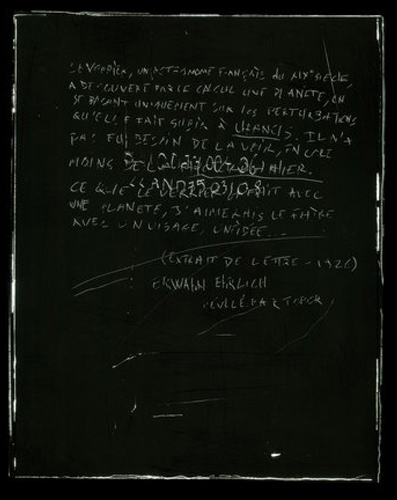 LE VERRIER, UN ASTRONOME FRANÇAIS DU XIXe SIÈCLE,
A DÉCOUVERT PAR LE CALCUL UNE PLANÈTE, EN
SE BASANT UNIQUEMENT SUR LES PERTURBATIONS
QU'ELLE FAIT SUBIR À URANUS. IL N'A
PAS EU BESOIN DE LA VOIR, ENCORE
MOINS DE LA
CE QUE LE VERRIER A FAIT AVEC
UNE PLANÈTE, J'AIMERAIS LE FAIRE
AVEC UN VISAGE, UNE IDÉE...
(EXTRAIT DE LETTRE - 1926)
ERWANN EHRLICH